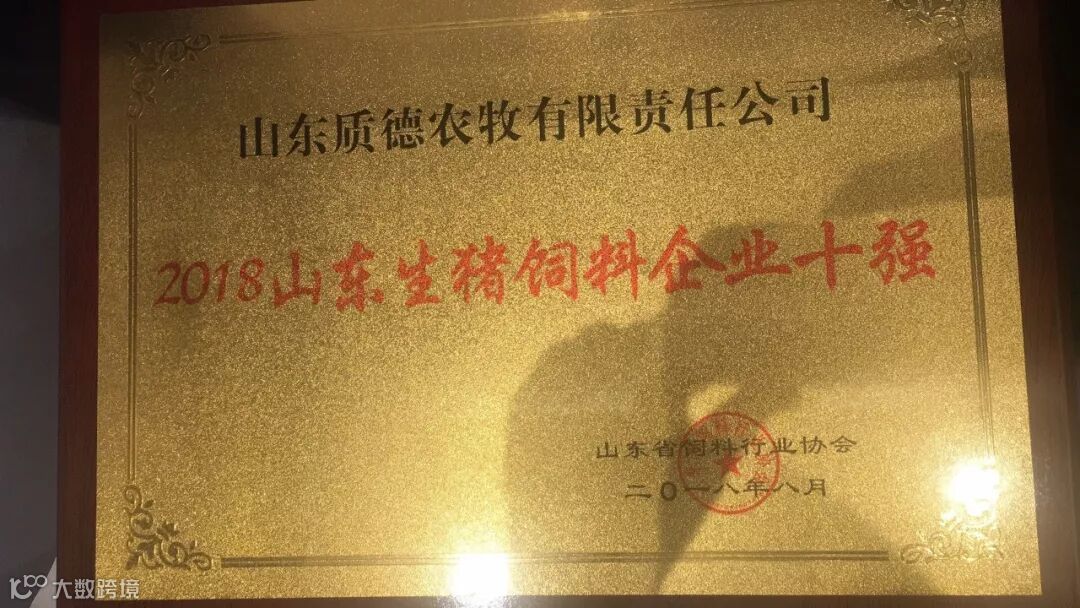 山东质德农牧有限责任公司
2018山东生猪饲料企业十强
山东省饲料行业协会
二〇一八年八月
大数跨境